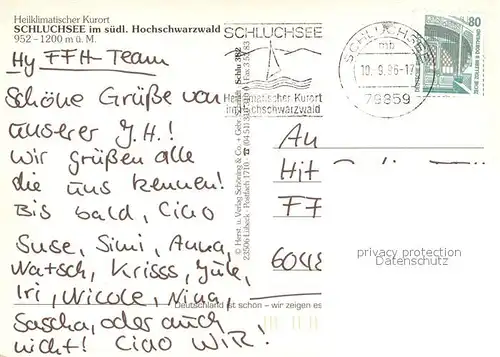 Heilklimatischer Kurort
SCHLUCHSEE im südl. Hochschwarzwald
952 – 1200 m ü. M.
Hy FFH-Team
Schöne Grüße von
unserer J.H.!
Wir grüßen alle
die uns kennen!
Bis bald, Ciao
Suse, Simi, Anna,
Watsch, Krisss, Jule,
Iri, Nicole, Nina,
Sascha, oder auch
nicht! Ciao WIR!
Schlu 382
© Herst. u. Verlag Schöning & Co. + Gebr.
23506 Lübeck · Postfach 1710
Deutschland ist schön – wir zeigen es
SCHLUCHSEE
Heilklimatischer Kurort
im Hochschwarzwald
SCHLUCHSEE
mb
10.9.96-17
79859
80
An
Hit
FF
604
privacy protection
Datenschutz